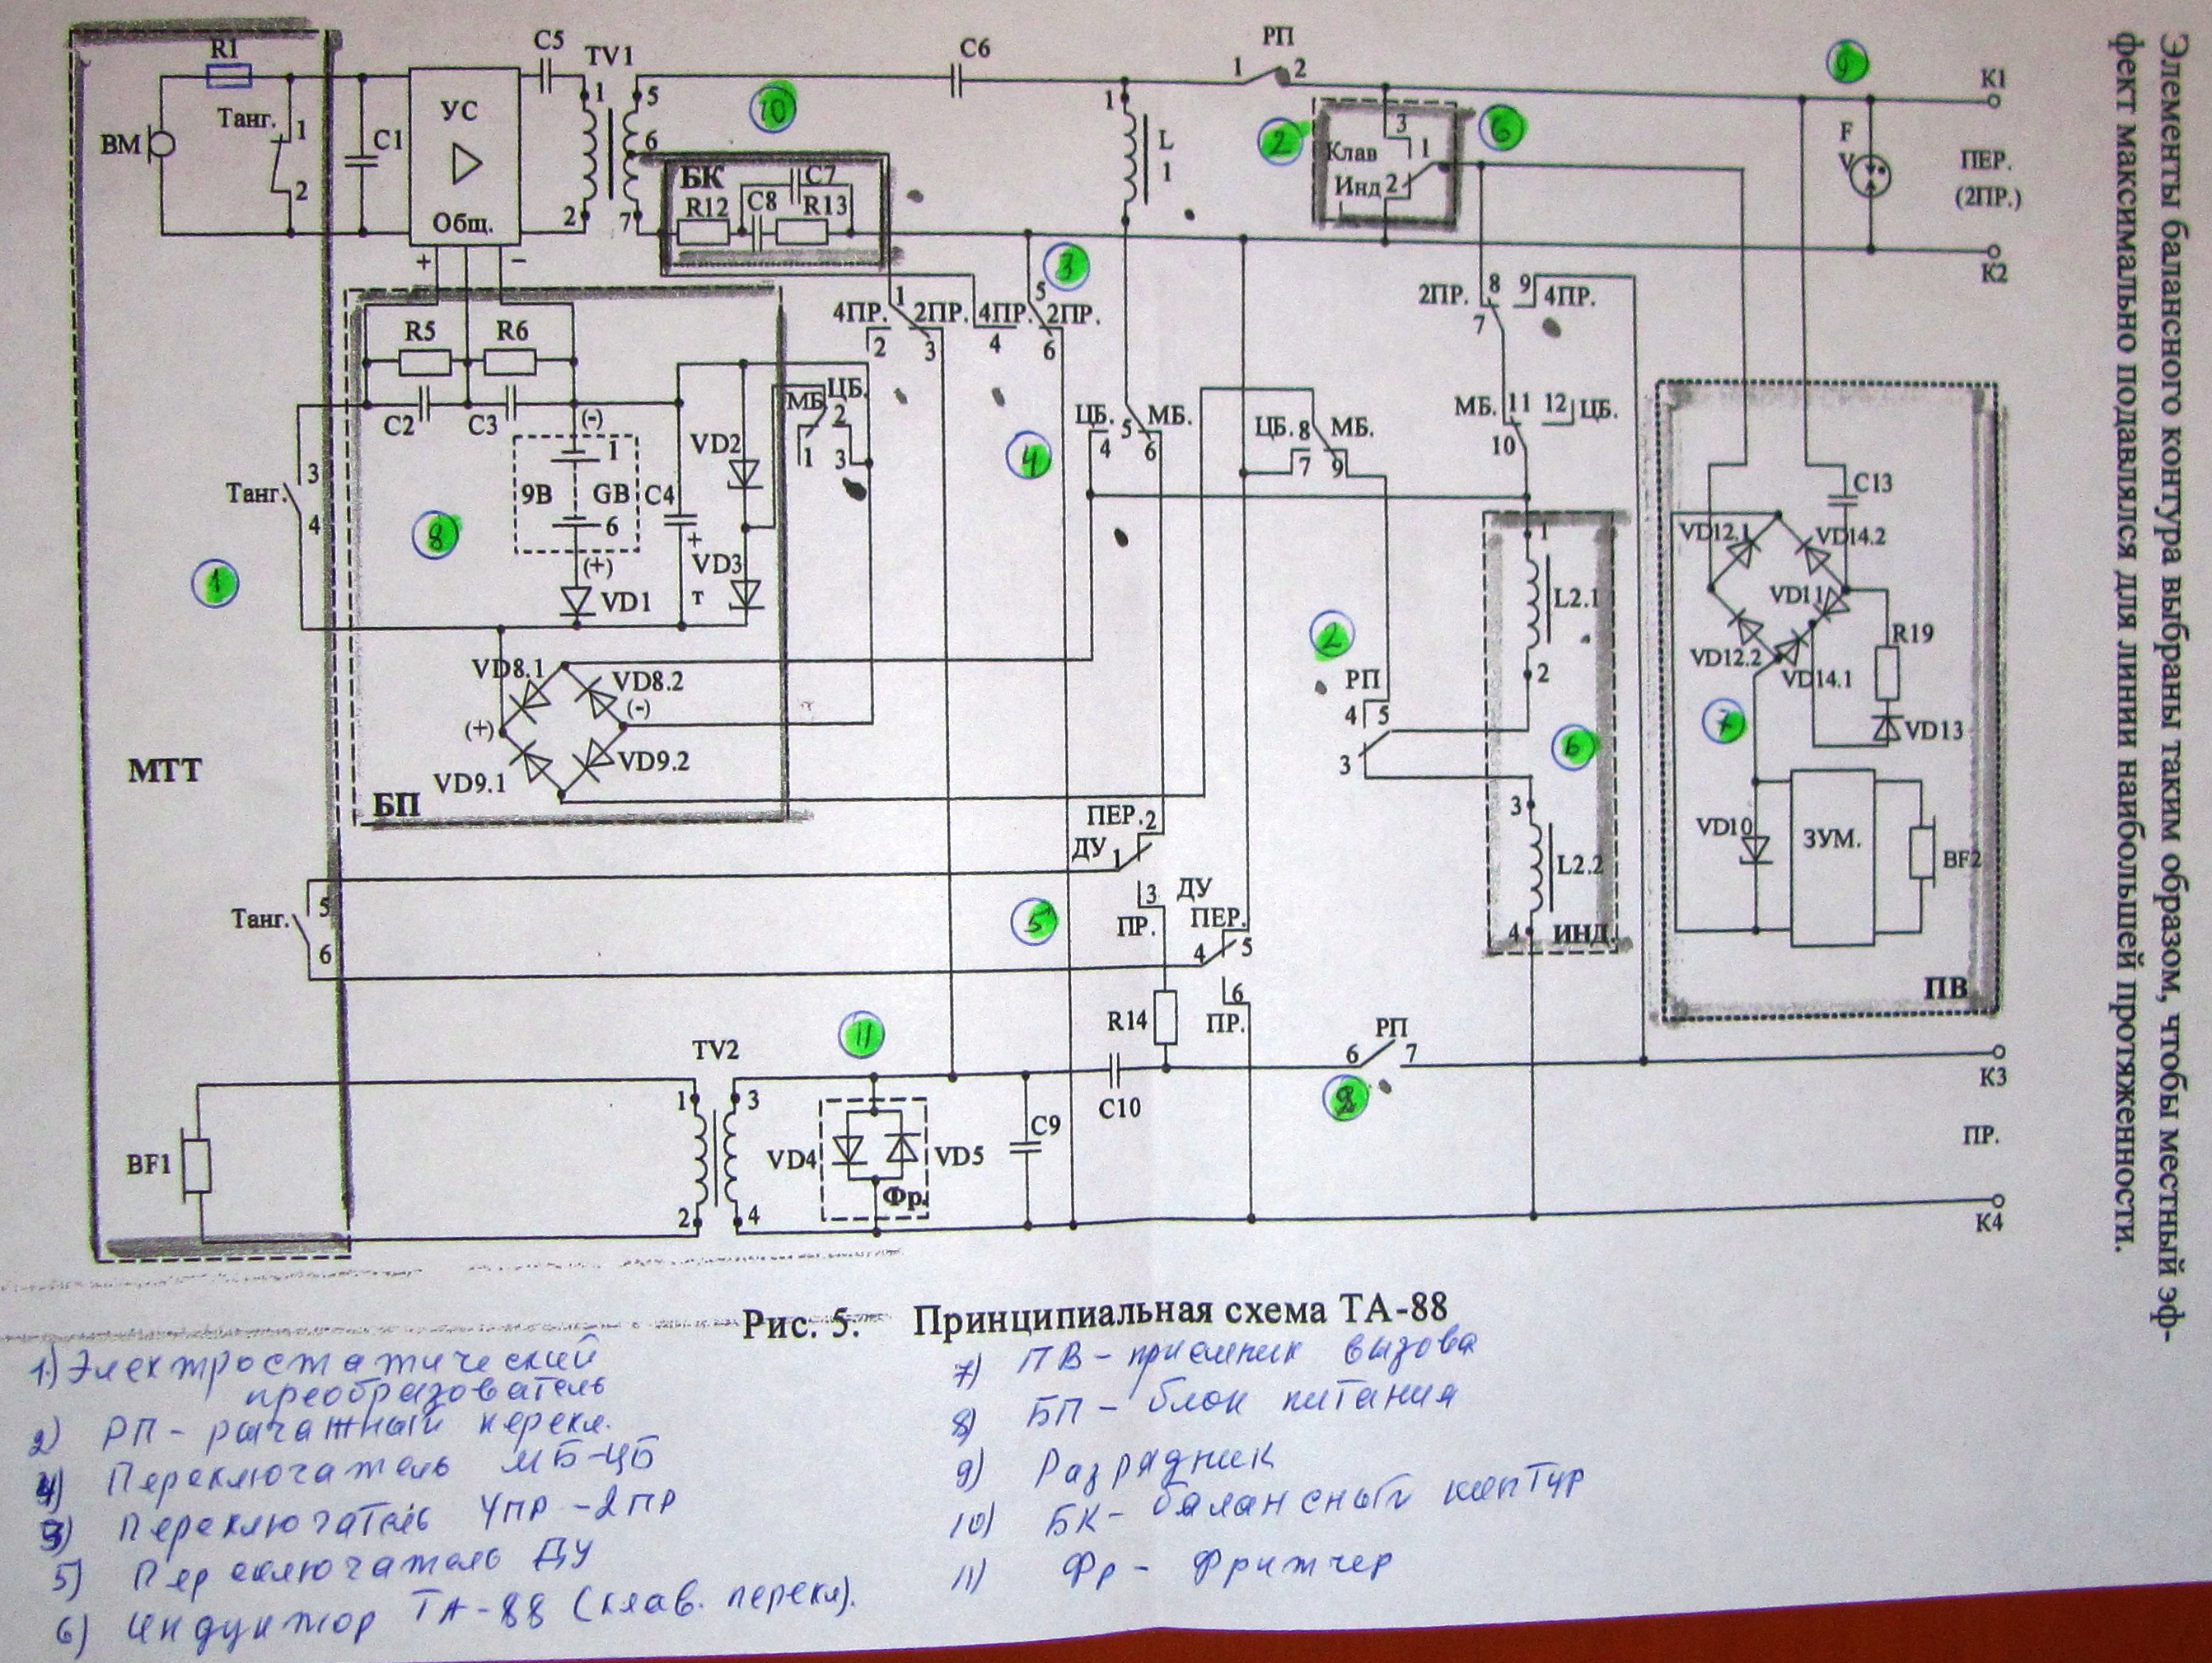 Элементы балансного контура выбраны таким образом, чтобы местный эф-
фект максимально подавлялся для линии наибольшей протяженности.
R1
C5
TV1
C6
РП
1 2
К1
ВМ
Танг.
1
2
C1
УС
Общ.
+ −
1
2
5
6
7
10
БК
C7
R12 C8 R13
1
L
1
2
Клав
Инд
3
1
2
6
9
F
V
ПЕР.
(2ПР.)
К2
3
R5 R6
C2 C3
4ПР. 1 2ПР. 4ПР. 5 2ПР.
2 3 4 6
2ПР. 8 9 4ПР.
7
(-)
1
9В GB
6
(+)
VD1
C4
+
VD2
VD3
т
МБ ЦБ.
2
1 3
4
ЦБ. 5 МБ.
4 6
ЦБ. 8 МБ.
7 9
МБ. 11 12 ЦБ.
10
Танг.
3
4
8
1
VD8.1 VD8.2
(+) (-)
VD9.1 VD9.2
БП
МТТ
1
L2.1
2
2
РП
4 5
3
6
3
L2.2
4
ИНД.
C13
VD12.1 VD14.2
VD11
VD12.2 VD14.1
R19
VD13
7
VD10
ЗУМ.
BF2
ПВ
ПЕР. 2
ДУ 1
3 ДУ
ПР. ПЕР.
4 5
6
ПР.
5
Танг.
5
6
R14
11
TV2
1 3
2 4
VD4 VD5
Фр.
C9
C10
РП
6 7
К3
ПР.
К4
BF1
Рис. 5. Принципиальная схема ТА-88
1) Электростатический
преобразователь
2) РП - рычажный перекл.
4) Переключатель МБ-ЦБ
3) Переключатель 4ПР - 2ПР
5) Переключатель ДУ
6) Индуктор ТА-88 (клав. перекл).
7) ПВ - приемник вызова
8) БП - блок питания
9) Разрядник
10) БК - балансный контур
11) Фр - Фритчер